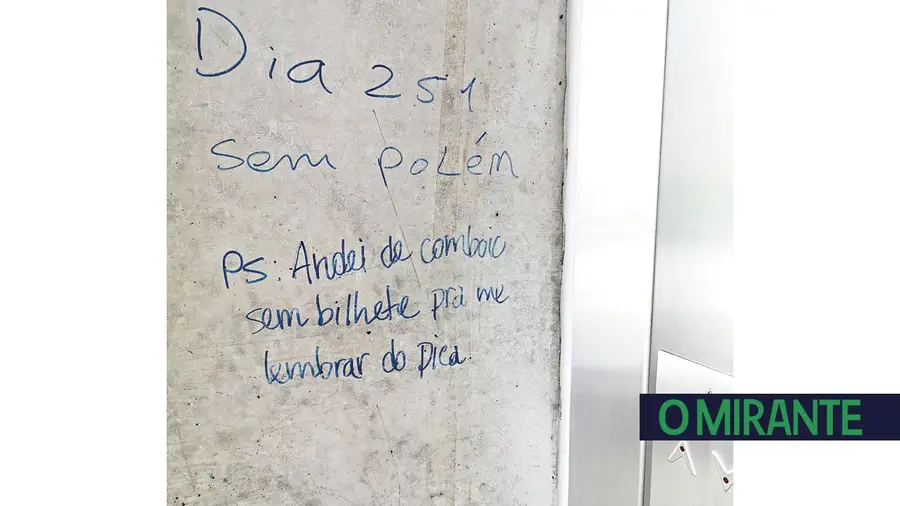 Dia 251
sem polén
PS: Andei de comboio
sem bilhete pra me
lembrar do Pica.
O MIRANTE